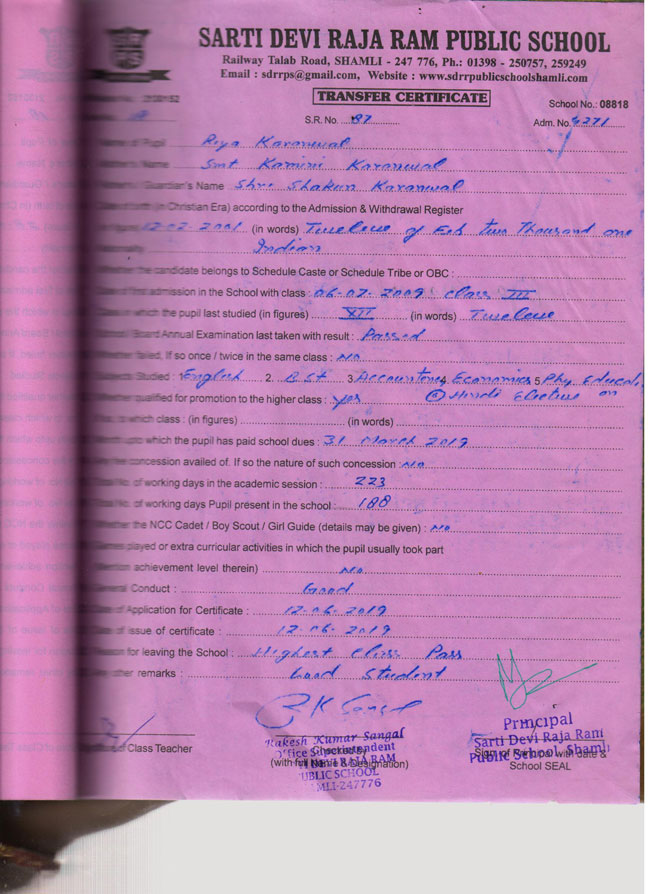 SARTI DEVI RAJA RAM PUBLIC SCHOOL
Railway Talab Road, SHAMLI - 247 776, Ph.: 01398 - 250757, 259249
Email : sdrrps@gmail.com, Website : www.sdrrpublicschoolshamli.com
TRANSFER CERTIFICATE
School No.: 08818
S.R. No. 87 Adm. No. 4271
Name of Pupil Riya Karanwal
Name Smt Kamini Karanwal
Guardian's Name Shri Shakun Karanwal
(in Christian Era) according to the Admission & Withdrawal Register
12-02-2001 (in words) Twelve of Feb two Thousand one
Indian
Whether the candidate belongs to Schedule Caste or Schedule Tribe or OBC :
Date of first admission in the School with class : 06-07-2009 class III
Class in which the pupil last studied (in figures) XII (in words) Twelve
Board Annual Examination last taken with result : Passed
Whether failed, If so once / twice in the same class : No
Subjects Studied : 1 English 2. B St 3. Accountancy 4. Economics 5. Phy. Educat
on
Whether qualified for promotion to the higher class : yes 6 Hindi Elective
to which class : (in figures) (in words)
which the pupil has paid school dues : 31 March 2019
concession availed of. If so the nature of such concession No
No. of working days in the academic session : 223
No. of working days Pupil present in the school : 188
Whether the NCC Cadet / Boy Scout / Girl Guide (details may be given) : No
Games played or extra curricular activities in which the pupil usually took part
(Mention achievement level therein) No
General Conduct : Good
Date of Application for Certificate : 12.06.2019
Date of issue of certificate : 12.06.2019
Reason for leaving the School : Highest Class Pass
Any other remarks : Good Student
R K Sangal
Class Teacher
Rakesh Kumar Sangal
Office Superintendent
Checked by
(with full Name & Designation)
DEVI RAJA RAM
PUBLIC SCHOOL
SHAMLI-247776
Principal
Sarti Devi Raja Ram
Public School, Shamli
Sign of Principal with date &
School SEAL